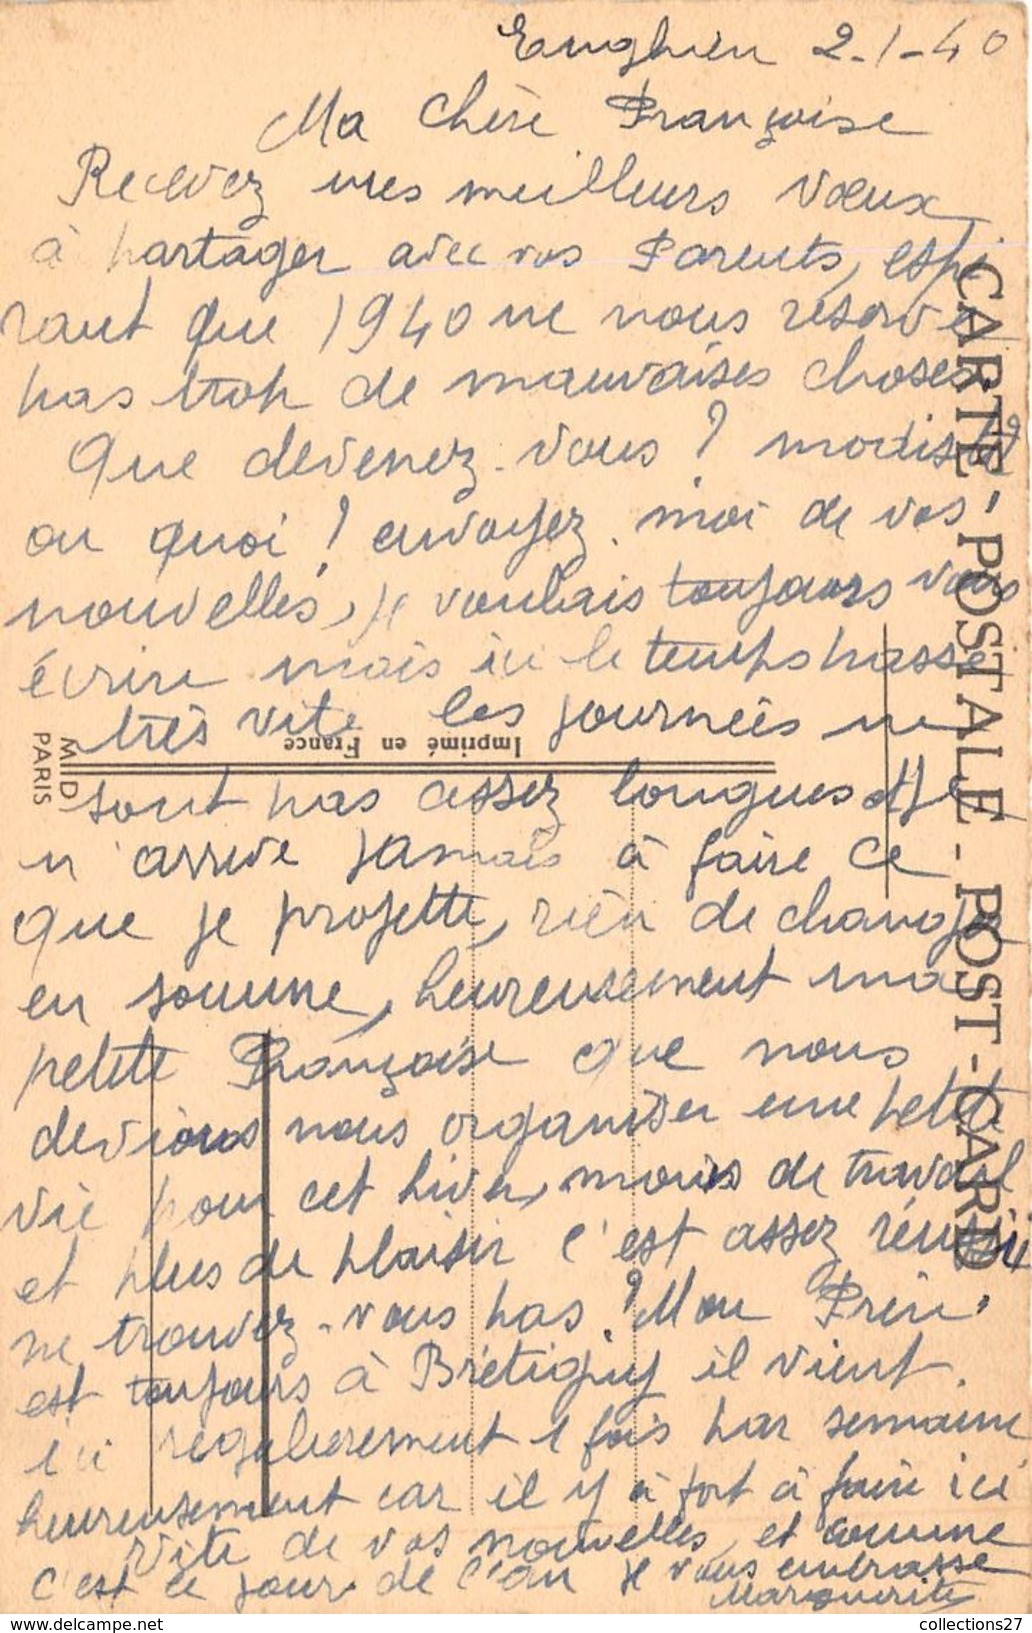 Enghien 2-1-40
Ma chère Françoise
Recevez mes meilleurs vœux
à partager avec vos Parents, espé
rant que 1940 ne nous réserve
pas trop de mauvaises choses.
Que devenez-vous ? modiste
ou quoi ! envoyez-moi de vos
nouvelles, je voulais toujours vous
écrire mais ici le temps passe
très vite les journées ne
sont pas assez longues et je
n'arrive jamais à faire ce
que je projette, rien de changé
en somme, heureusement ma
petite Françoise que nous
devions nous organiser une petite
vie pour cet hiver, moins de travail
et plus de plaisir c'est assez réussi
ne trouvez-vous pas ? Mon
est toujours à Brétigny il vient
ici régulièrement 1 fois par semaine
heureusement car il y a fort à faire ici
vite de vos nouvelles, et comme
c'est le jour de l'an je vous embrasse
Marguerite
CARTE POSTALE - POST-CARD
Imprimé en France
M D
PARIS
collections27